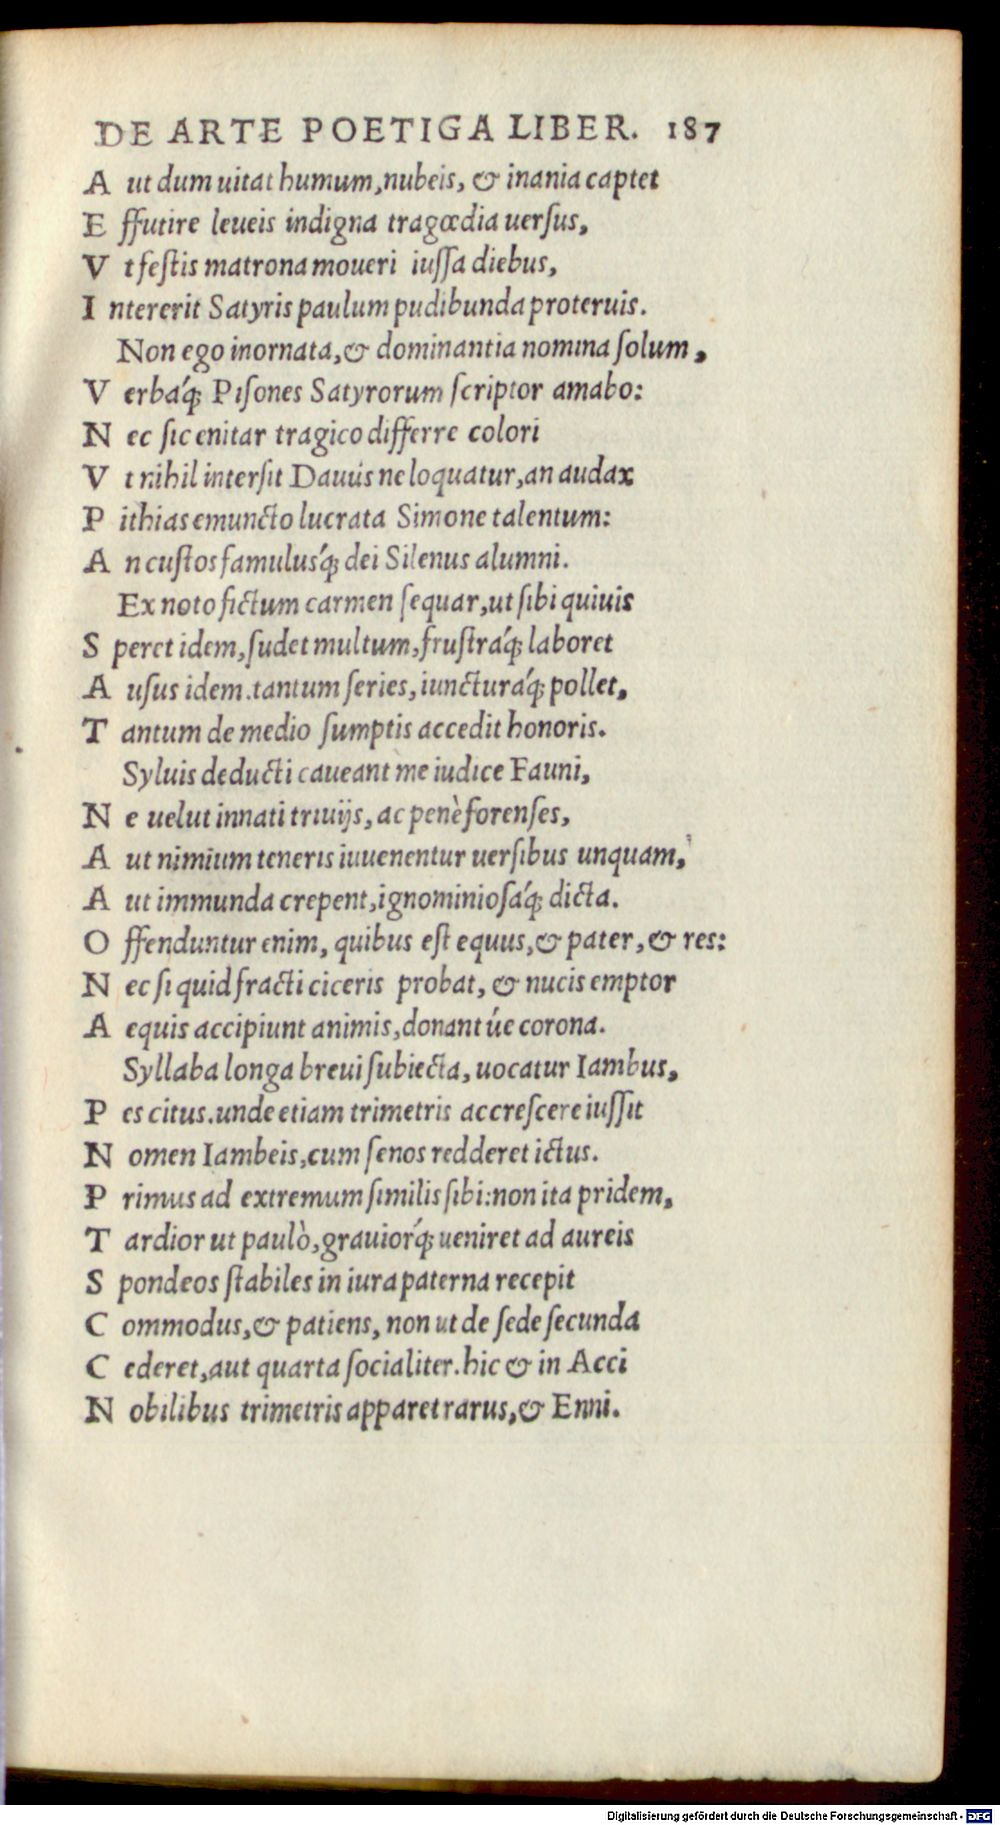 DE ARTE POETIGA LIBER. 187
A ut dum uitat humum, nubeis, & inania captet
E ffutire leueis indigna tragœdia uerſus,
V t feſtis matrona moueri iuſſa diebus,
I ntererit Satyris paulum pudibunda proteruis.
Non ego inornata, & dominantia nomina ſolum,
V erbáq; Piſones Satyrorum ſcriptor amabo:
N ec ſic enitar tragico differre colori
V t nihil interſit Dauús ne loquatur, an audax
P ithias emuncto lucrata Simone talentum:
A n cuſtos famulusq́; dei Silenus alumni.
Ex noto fictum carmen ſequar, ut ſibi quiuis
S peret idem, ſudet multum, fruſtráq; laboret
A uſus idem. tantum ſeries, iuncturáq; pollet,
T antum de medio ſumptis accedit honoris.
Syluis deducti caueant me iudice Fauni,
N e uelut innati triuijs, ac penè forenſes,
A ut nimium teneris iuuenentur uerſibus unquam,
A ut immunda crepent, ignominioſáq; dicta.
O ffenduntur enim, quibus eſt equus, & pater, & res:
N ec ſi quid fracti ciceris probat, & nucis emptor
A equis accipiunt animis, donant úe corona.
Syllaba longa breui ſubiecta, uocatur Iambus,
P es citus. unde etiam trimetris accreſcere iuſſit
N omen Iambeis, cum ſenos redderet ictus.
P rimus ad extremum ſimilis ſibi: non ita pridem,
T ardior ut paulò, grauiorq́; ueniret ad aureis
S pondeos ſtabiles in iura paterna recepit
C ommodus, & patiens, non ut de ſede ſecunda
C ederet, aut quarta ſocialiter. hic & in Acci
N obilibus trimetris apparet rarus, & Enni.
Digitalisierung gefördert durch die Deutsche Forschungsgemeinschaft - DFG